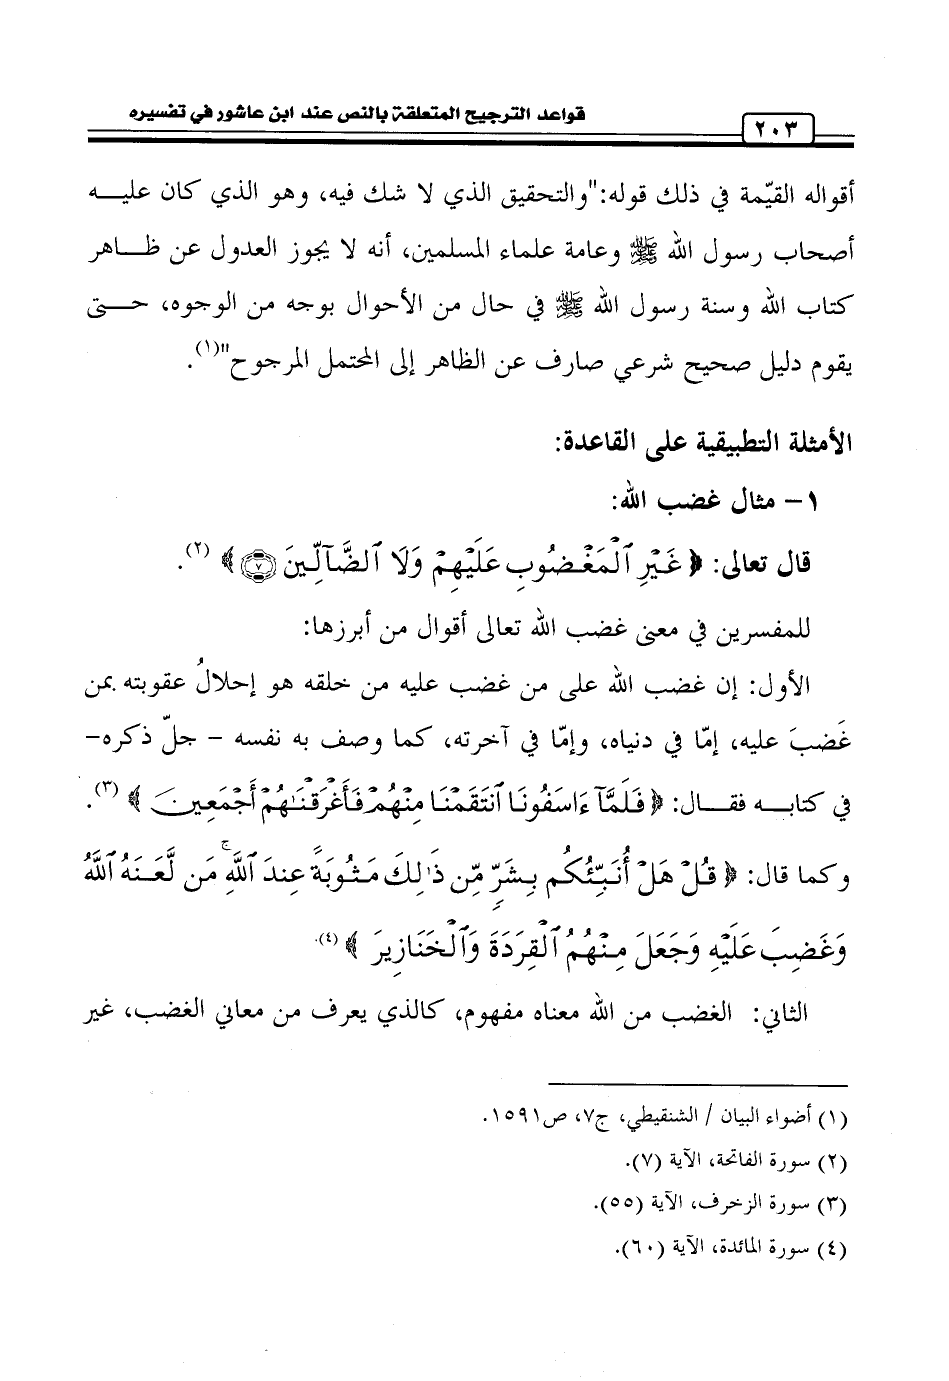 قواعد الترجيح المتعلقة بالنص عند ابن عاشور في تفسيره
٢٠٣
أقواله القيّمة في ذلك قوله:"والتحقيق الذي لا شك فيه، وهو الذي كان عليه
أصحاب رسول الله ﷺ وعامة علماء المسلمين، أنه لا يجوز العدول عن ظاهر
كتاب الله وسنة رسول الله ﷺ في حال من الأحوال بوجه من الوجوه، حتى
يقوم دليل صحيح شرعي صارف عن الظاهر إلى المحتمل المرجوح"(١).
الأمثلة التطبيقية على القاعدة:
١- مثال غضب الله:
قال تعالى: ﴿ غَيْرِ ٱلْمَغْضُوبِ عَلَيْهِمْ وَلَا ٱلضَّآلِّينَ ٧ ﴾ (٢).
للمفسرين في معنى غضب الله تعالى أقوال من أبرزها:
الأول: إن غضب الله على من غضب عليه من خلقه هو إحلالُ عقوبته بمن
غَضبَ عليه، إمّا في دنياه، وإمّا في آخرته، كما وصف به نفسه - جلّ ذكره-
في كتابه فقال: ﴿ فَلَمَّآ ءَاسَفُونَا ٱنتَقَمْنَا مِنْهُمْ فَأَغْرَقْنَـٰهُمْ أَجْمَعِينَ ﴾ (٣).
وكما قال: ﴿ قُلْ هَلْ أُنَبِّئُكُم بِشَرٍّ مِّن ذَٰلِكَ مَثُوبَةً عِندَ ٱللَّهِ ۚ مَن لَّعَنَهُ ٱللَّهُ
وَغَضِبَ عَلَيْهِ وَجَعَلَ مِنْهُمُ ٱلْقِرَدَةَ وَٱلْخَنَازِيرَ ﴾ (٤).
الثاني: الغضب من الله معناه مفهوم، كالذي يعرف من معاني الغضب، غير
(١) أضواء البيان / الشنقيطي، ج٧، ص١٥٩١.
(٢) سورة الفاتحة، الآية (٧).
(٣) سورة الزخرف، الآية (٥٥).
(٤) سورة المائدة، الآية (٦٠).